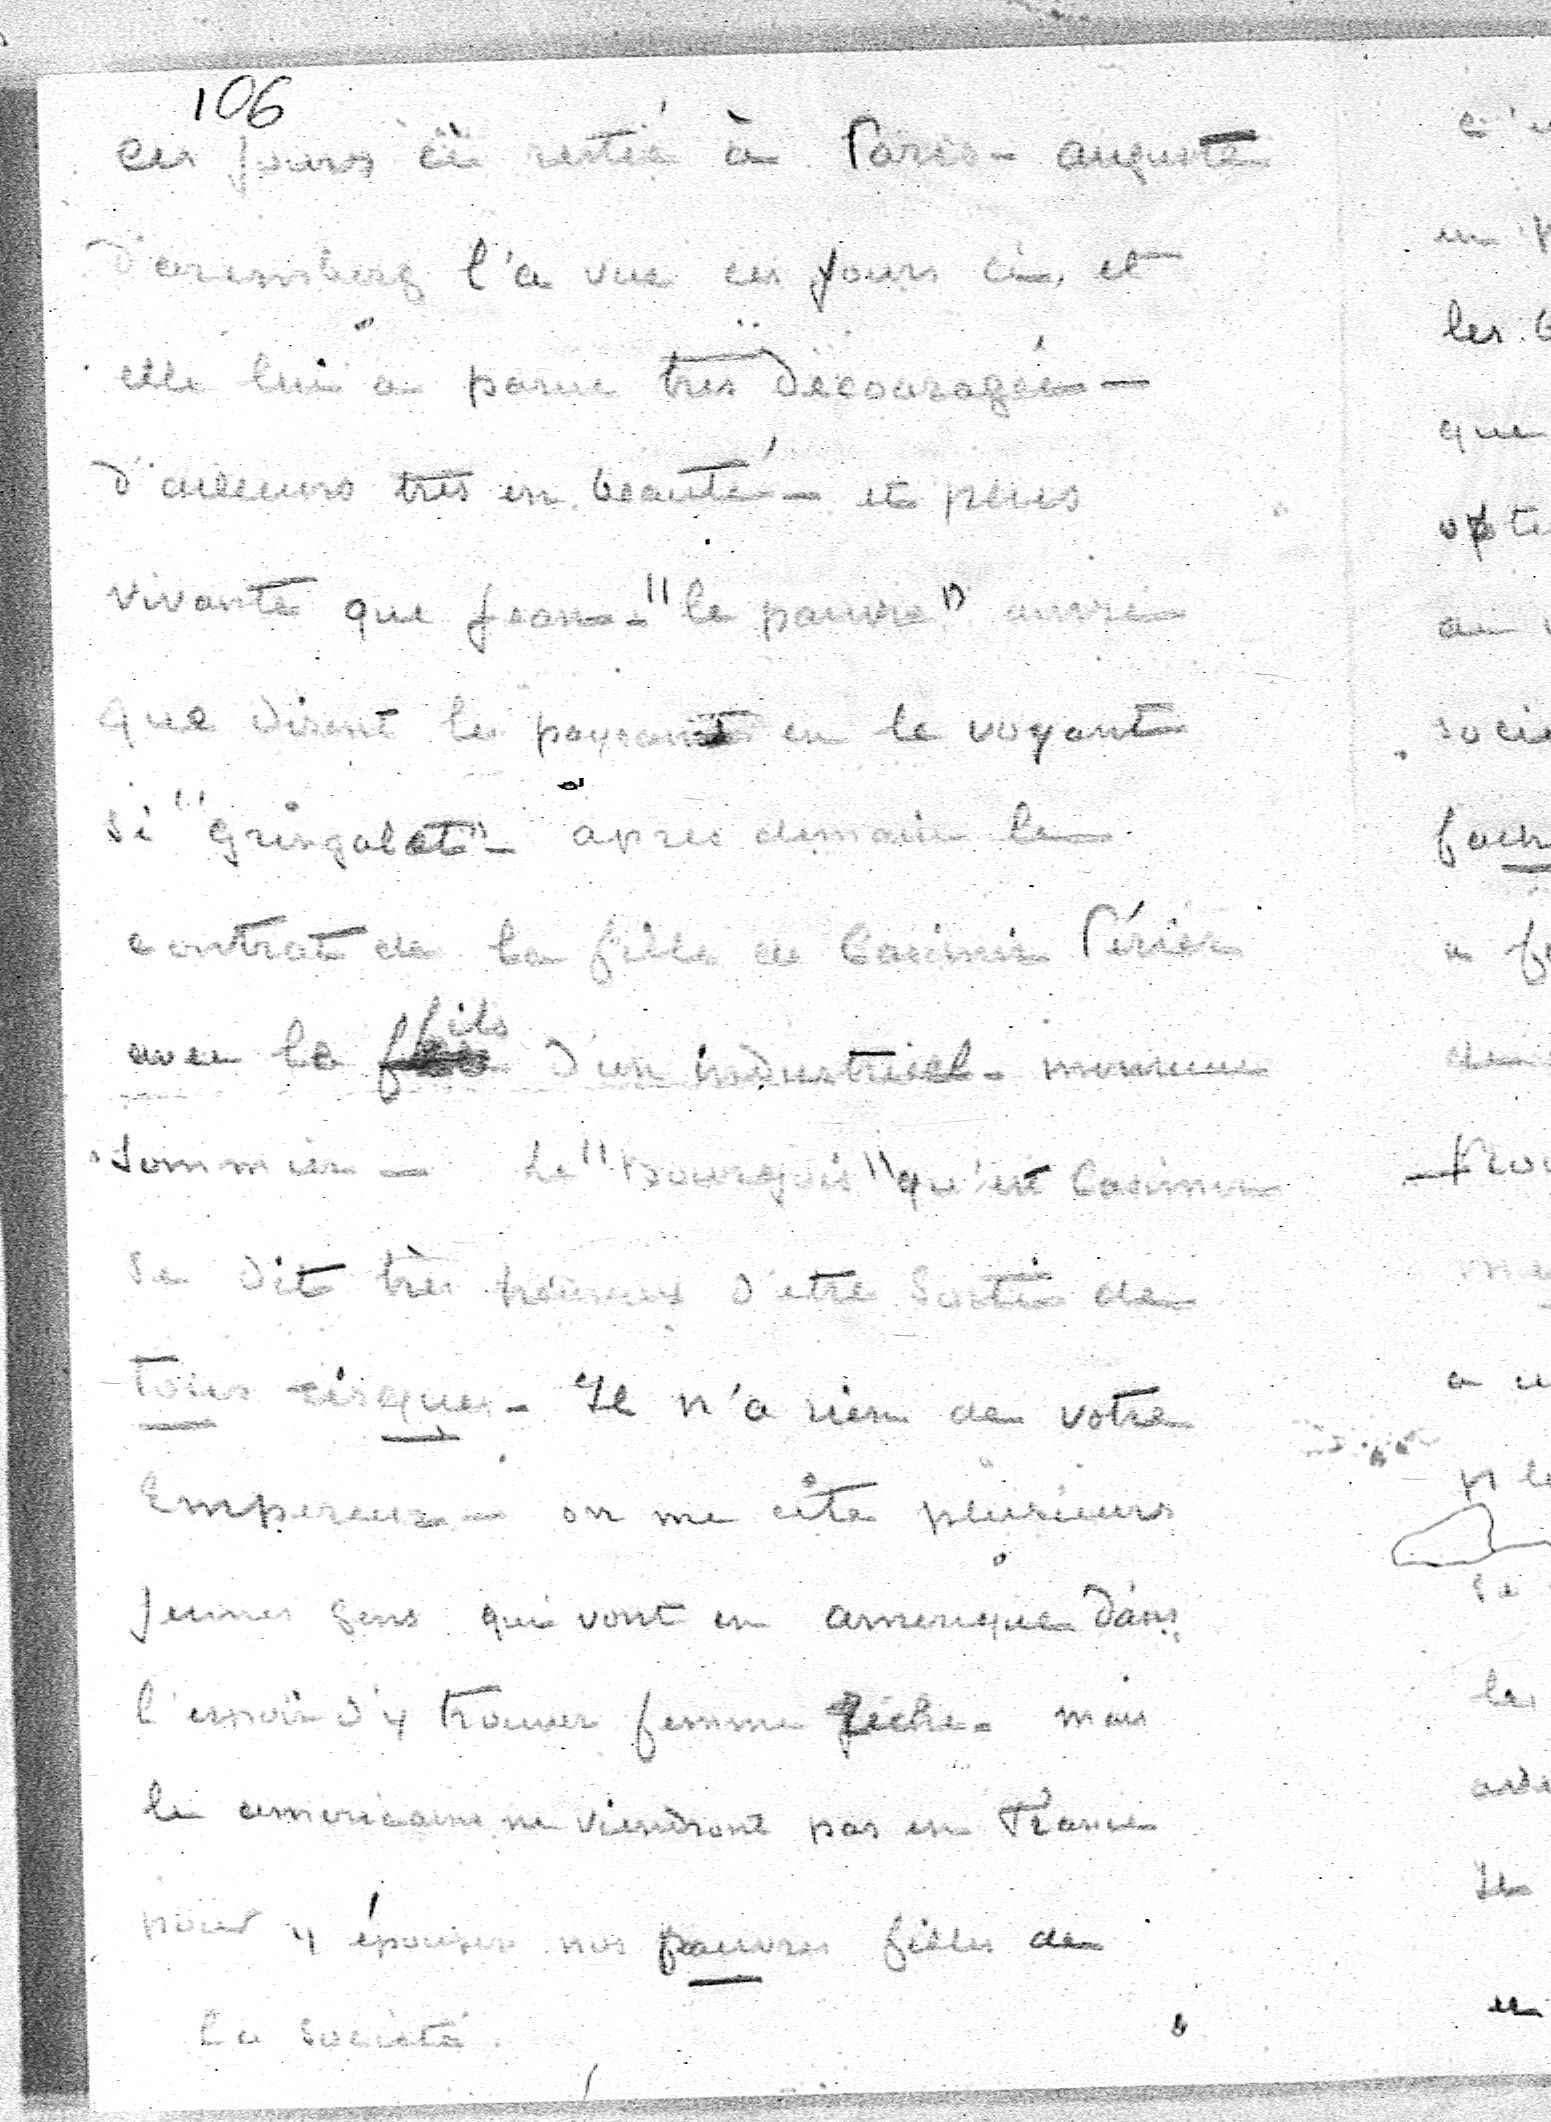 106
ces jours ci resté à Paris - auguste
d'aremberg l'a vue ces jours ci, et
elle lui a parue très découragée -
d'ailleurs très en beauté - et plus
vivante que jean - "le pauvre"
que disent les paysans en le voyant
si "gringalet" - après demain le
contrat de la fille de Casimir Périer
avec le fils d'un industriel - monsieur
Sommier - Le "bourgois" qu'est Casimir
se dit très heureux d'etre sorti de
tous risques - Il n'a rien de votre
Empereur - on me cite plusieurs
jeunes gens qui vont en amerique dans
l'espoir d'y trouver femme riche - mais
les americains ne viendront pas en France
pour y épouser nos pauvres filles de
la société.
c'e
en p
les
que
ai
socié
a
de
a
se
les